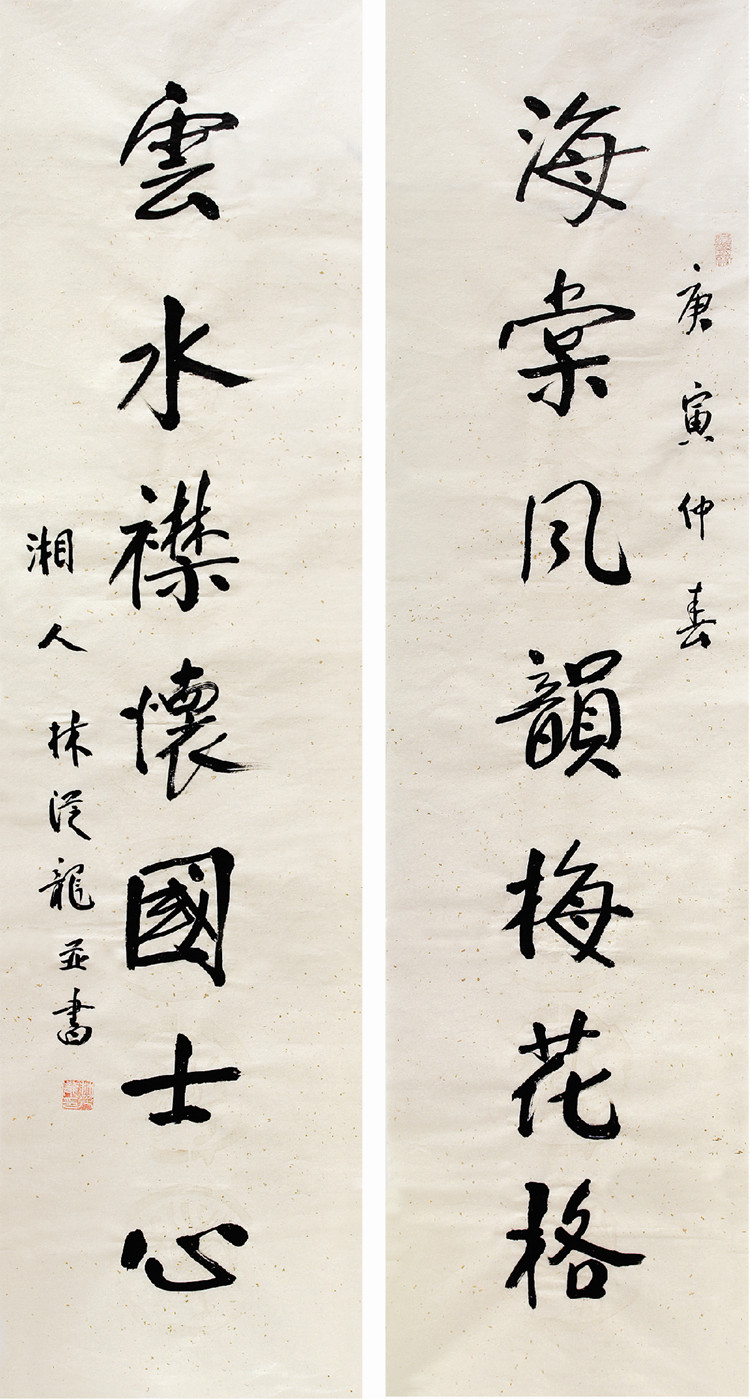 庚寅仲春
海棠风韻梅花格
雲水襟懷國士心
湘人林從龍並書